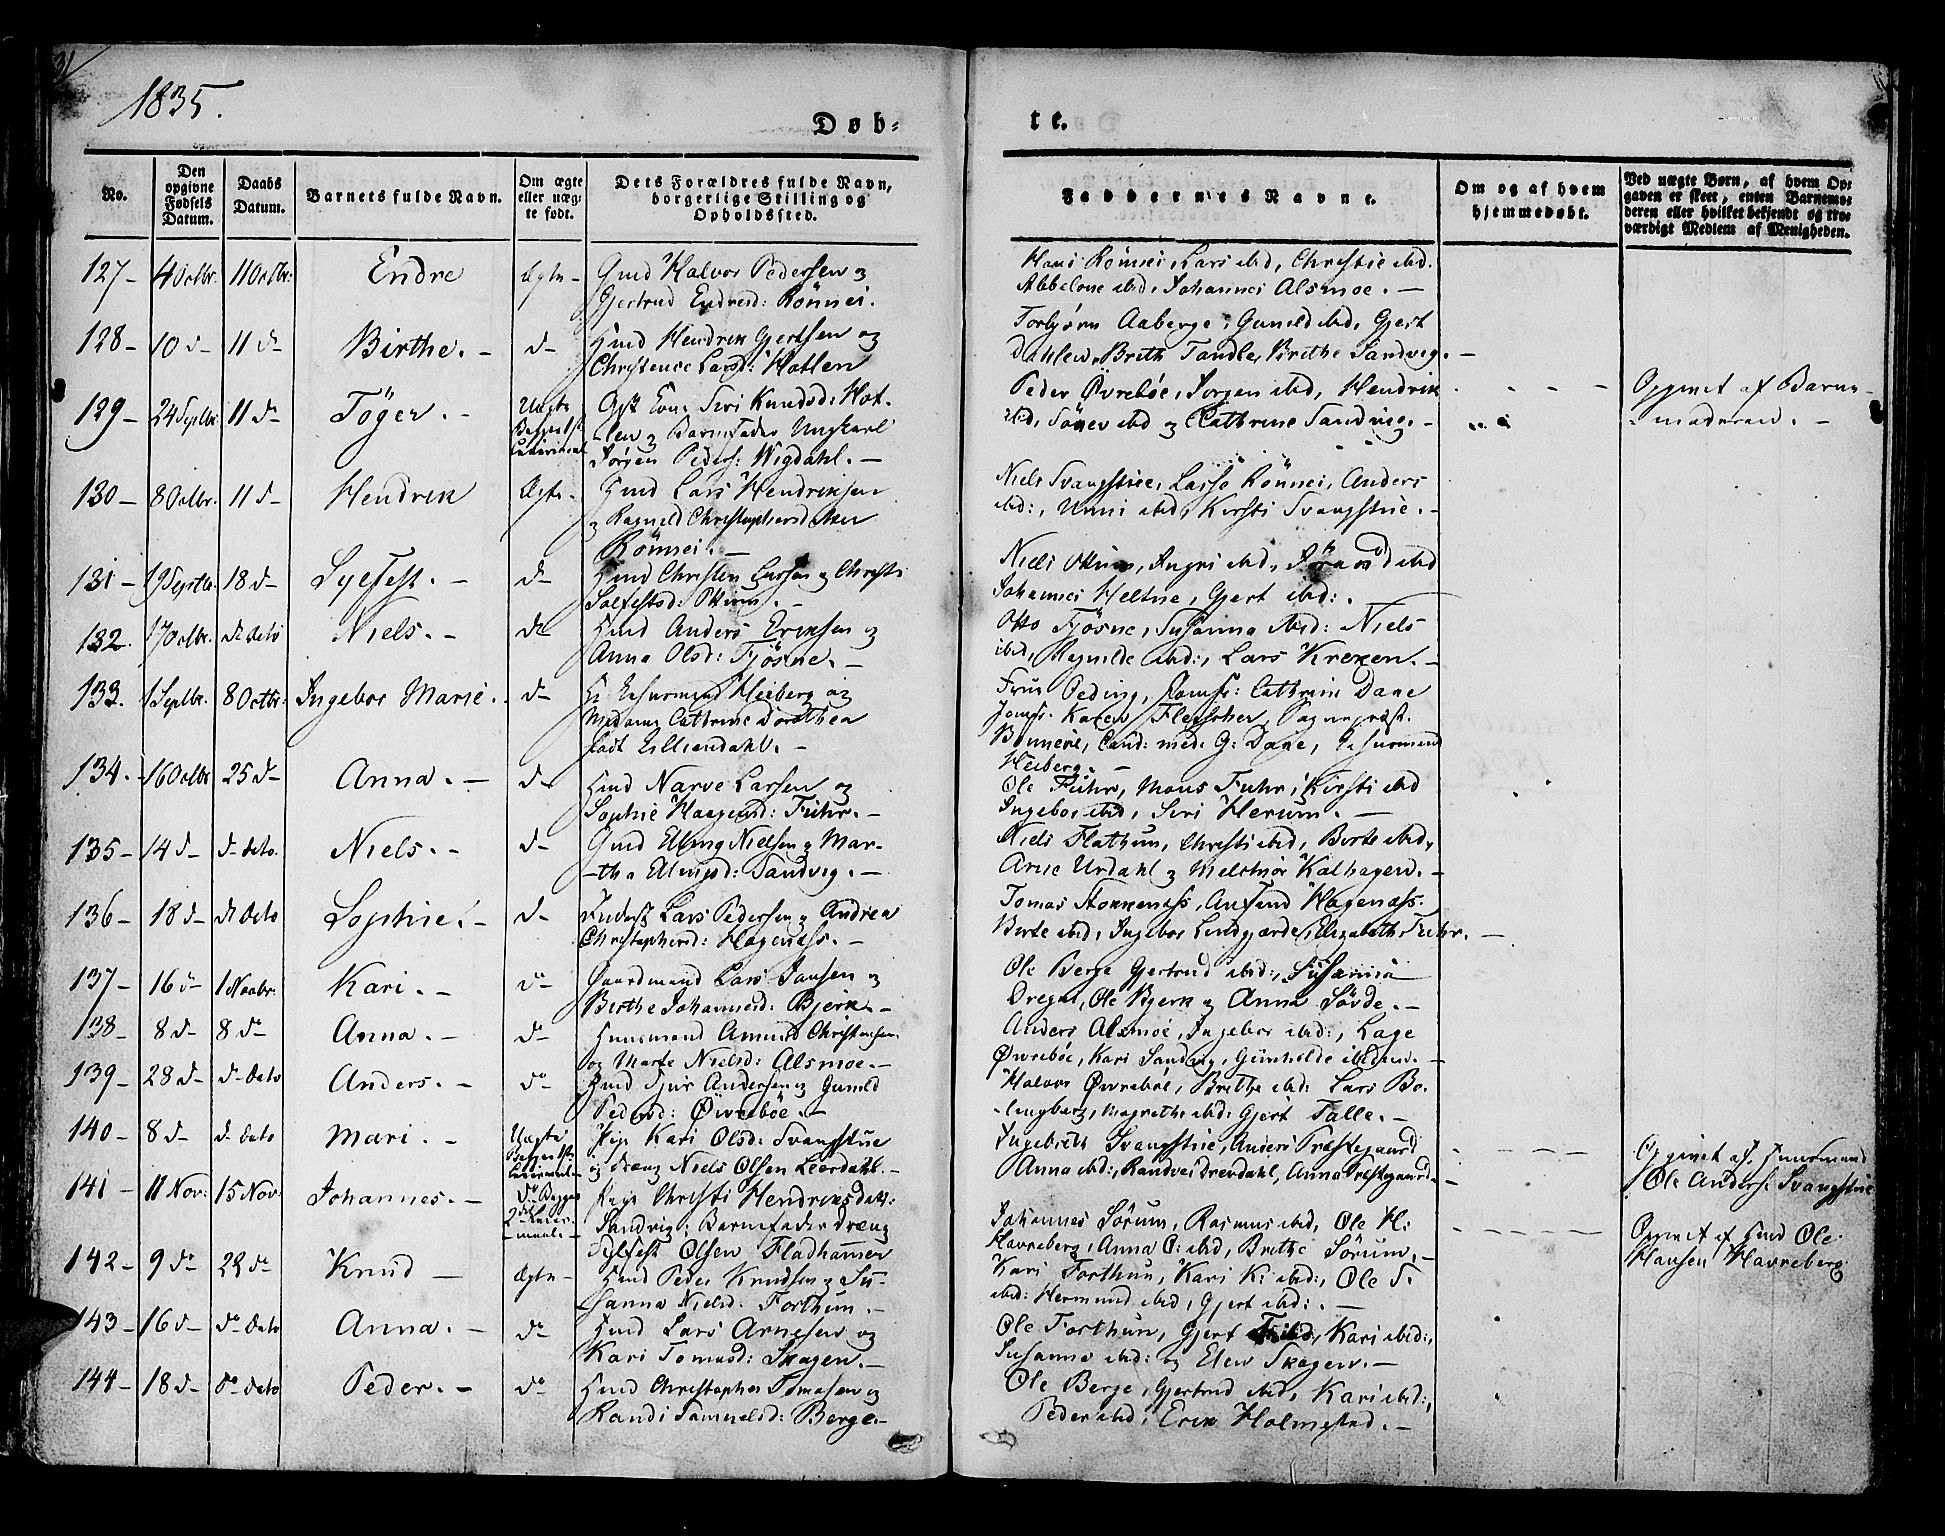 1835.
Døb-
te.
No.
Den opgivne Fødsels Datum.
Daabs Datum.
Barnets fulde Navn.
Om ægte eller uægte født.
Dets Forældres fulde Navn, borgerlige Stilling og Opholdssted.
Faddernes Navne.
Om og af hvem hjemmedøbt.
Ved uægte Børn, af hvem Opgaven er skeet, enten Barnemoderen eller hvilket bekjendt og troværdigt Medlem af Menigheden.
127 – 4 Octbr. 11 Octbr: Endre Ægte – Gmd Halvor Pedersen og
Gjertrud Endresd: Rönnei.
Hans Rönnei, Lars ibid, Christie ibid.
Abbelone ibid, Johannes Alsmoe. –
128 – 10 d– 11 d– Birthe. – d– Hmd Hendrik Gjertsen og
Christence Larsd: Hatlen
Torbjörn Aaberge, Gunild ibid, Gjert
Dahlen, Brith Tandle, Brithe Sandvig. –
129 – 24 Septbr. 11 d– Töger. – Uægte Knudsd: Hat-
-len og Barnefader Ungkarl
Jörgen Peders: Wigdahl. –
Peder Övreböe, Jörgen ibid, Hendrik
ibid, ibid og Cathrine Sandvig. –
Opgivet af Barne-
-moderen. –
130 – 8 Octbr. 11 d– Hendrik Ægte – Hmd Lars Hendriksen
og Ragnild Christophersd
Rönnei. –
Niels Svangstue, Lasse Rönnei, Anders
ibid:, Unni ibid, Kirsti Svangstue. –
131 – 19 Septbr. 18 d– Sylfest. – d– Hmd Christen Larsen og Christi
Solfestsd: Ottum. –
Niels Ottum, Ingri ibid, ibid
Johannes Heltne, Gjert ibid:.
132. 17 Octbr. d– dato Niels. – d– Hmd Anders Eriksen og
Anna Olsd: Fjösne. –
Otto Fjösne, Susanna ibid: Niels
ibid, Ragnilde ibid:, Lars Kreken. –
133. 1 Septbr. 8 Octbr: Ingebor Marie. d– Hr Heiberg og
Madame Cathrine Dorothea
födt Lilliendahl. –
Frue, Jomfr: Cathrine Dane
Jomfr. Karen Fleischer, Sognepræst
Cand: med: G: Dane,
Heiberg. –
134. – 16 Octbr 25 d– Anna. – d– Hmd Narve Larsen og
Sophie Haagensd: Fuhr. –
Ole Fuhr, Mons Fuhr, Kirsti ibid
Ingebor ibid, Siri Herum. –
135 – 14 d– d– dato. Niels. – d– Gmd Elling Nielsen og Mar-
-tha Ellingsd: Sandvig. –
Niels Flathun, Christi ibid, Berte ibid,
Arne Urdahl og Melchior Kalhagen. –
136 – 18 d– d– dato Sophie. – d– Lars Pedersen og Andrea
Christophersd: Hagenæss. –
Tomas Stokkenæss, Anfind Hagenæss.
Berte ibid, Ingebor Lindgjærde, Elizabeth Fuhr. –
137 – 16 d– 1 Novbr: Kari. – d– Gaardmand Lars Jansen og
Birthe Johannesd: Bjerk. –
Ole Berge Gjertrud ibid:, Susanna
Dregni, Ole Bjerk og Anna Sövde. –
138 – 8 d– 8 d– Anna. – d– Huusmand Amund Christensen
og Marte Nielsd: Alsmoe. –
Anders Alsmoe, Ingebor ibid:, Lage
Övreböe, Kari Sandvig, Gunhilde ibidem. –
139 – 28 d– d– dato Anders. – d– Hmd Sjur Andersen og Gunild
Pedersd: Övreböe. –
Halvor Övreböe, Brithe ibid: Lars Bo-
-lingberg, Magrethe ibid: Gjert Talle. –
140 – 8 d– d– dato Mari. – Uægte Pige Kari Olsd: Svangstue
og Dreng Niels Olsen Leerdahl. –
Ingebrith Svangstue, Anders Præstegaard
Anna ibid:, Randvei Drevdahl, Anna Præstegaard. –
Opgivet af Huusmand
Ole Anders: Svangstue
141 – 11 Nov: 15 Nov: Johannes. – Pige Christi Hendriksdatt:
Sandvig: Barnefader Dreng
Sylfest Olsen Fladhammer
Johannes Sörum, Rasmus ibid, Ole H:
Havreberg, Anna O: ibid, Brithe Sörum. –
Opgivet af Hmd Ole
Hansen Havreberg
142 – 9 d– 22 d– Knud – Ægte – Hmd Peder Knudsen og Su-
sanna Nielsd: Forthun. –
Kari Forthun, Kari K: ibid:, Ole S.
ibid: Hermund ibid, Gjert ibid:. –
143 – 16 d– d– dato Anna. – d– Hmd Lars Arnesen og
Kari Tomasd: Skagen. –
Ole Forthun, Gjert ibid, Kari ibid:,
Susanna ibid: og Elen Skagen. –
144 – 18 d– d– dato Peder. – d– Hmd Christopher Tomasen og
Randi Samuelsd: Berge. –
Ole Berge, Gjertrud ibid, Kari ibid:,
Peder ibid, Erik Holmestad. –